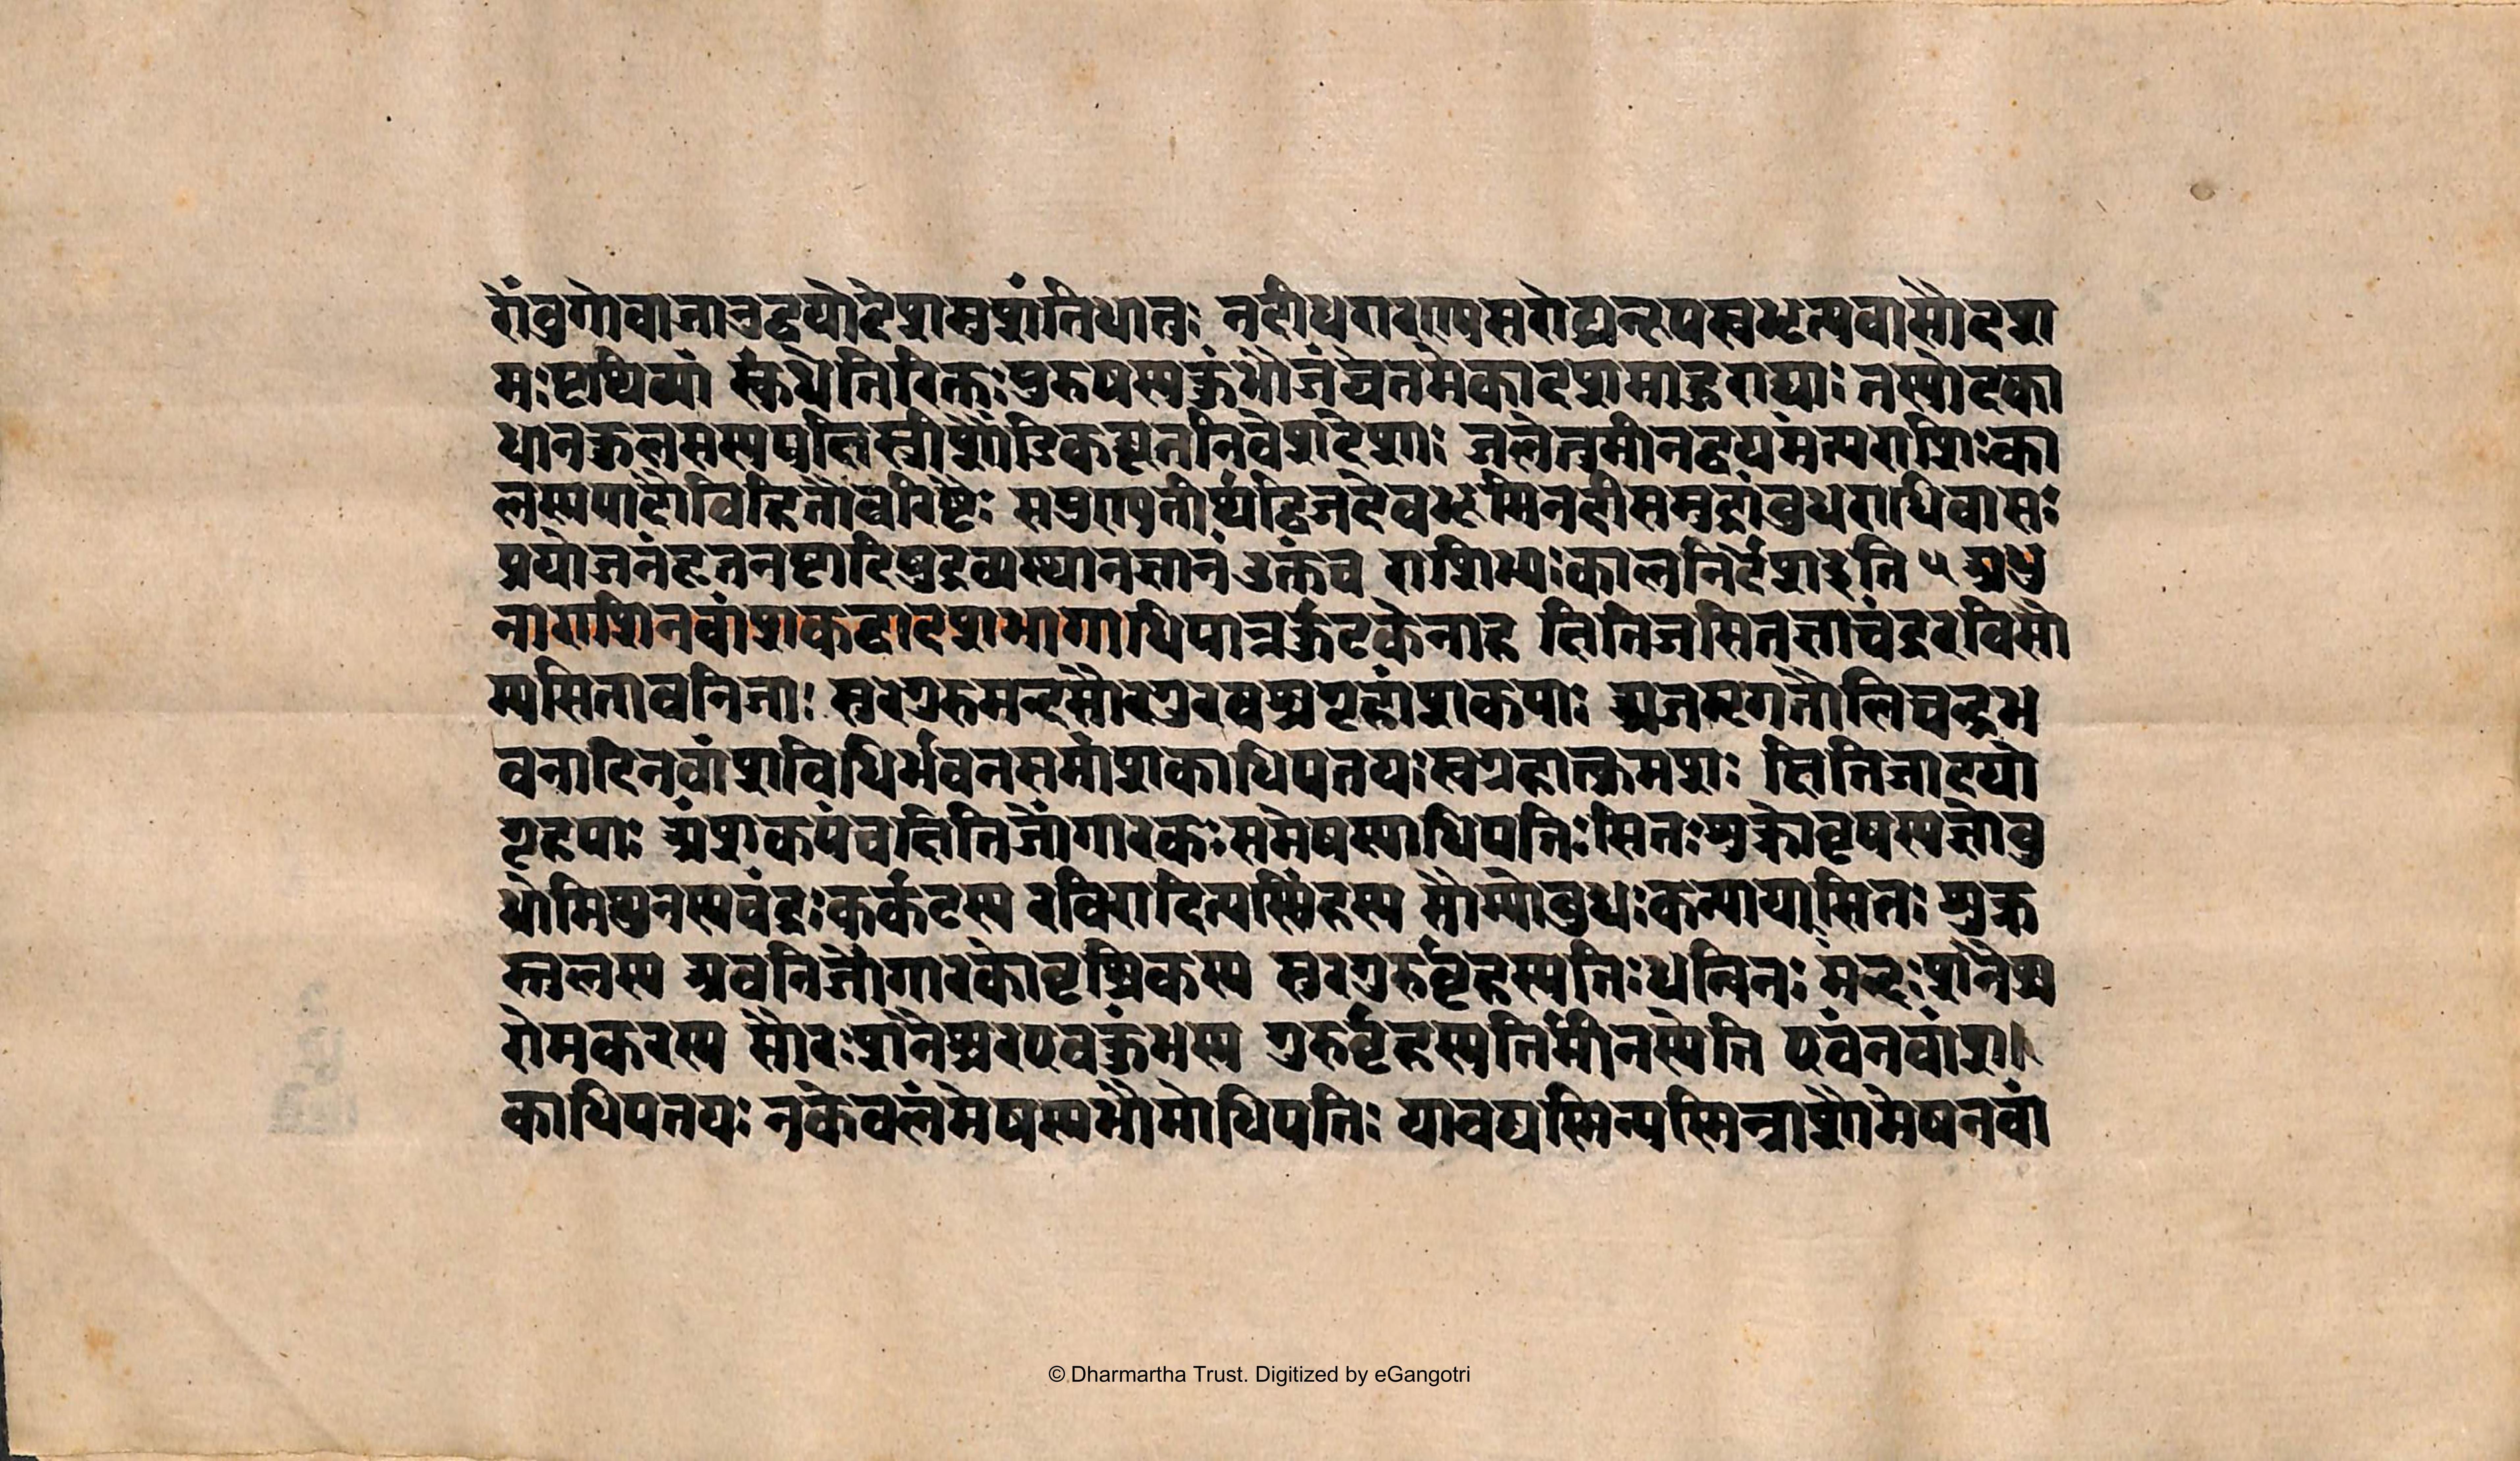 रोंबुगोवाजानुद्वयोदेशमुशंतिधातुः नदीधरारण्यसरोद्यनूपस्वभृत्यवासोदश
मःपृथिव्यां स्कंधेतिरिक्तःपुरुषस्यकुंभोजंघेतमेकादशमाहुराद्याः तस्योदका
धानकुलसस्यपक्षिस्त्रीशौंडिकद्यूतनिवेशदेशाः जलेतुमीनद्वयमंत्यराशिःका
लस्यपादौविहितौवरिष्टैः सपुण्यतीर्थद्विजदेवभूमिनदीसमुद्रांबुधराधिवासः
प्रयोजनंहृतनष्टादिषुद्रव्यस्थानज्ञानं उक्तंच राशिभ्यःकालनिर्देशइति ५ अधु
नाराशिनवांशकद्वादशभागाधिपान्नर्कुटकेनाह क्षितिजसितज्ञचंद्ररविसौ
म्यसितावनिजाः सुरगुरुमन्दसौरगुरवश्चगृहांशकपाः अजमृगतौलिचन्द्रभ
वनादिनवांशविधिर्भवनसमांशकाधिपतयःस्वगृहात्क्रमशः क्षितिजादयो
गृहपाः अंशकपंचक्षितिजोंगारकःसमेषस्याधिपतिःसितःशुक्रोवृषस्यज्ञोबु
धोमिथुनस्यचंद्रःकर्कटस्य रविरादित्यस्सिंहस्य सौम्योबुधःकन्यायासितः शुक्र
स्तुलस्य अवनिजोंगारकोवृश्चिकस्य सुरगुरुर्वृहस्पतिःधन्विनः मंन्दःशनैश्च
रोमकरस्य सौरःशनैश्चरएवकुंभस्य गुरुर्वृहस्पतिर्मीनस्येति एवंनवांश।
काधिपतयः नकेवलंमेषस्यभौमोधिपतिः यावद्यस्मिन्यस्मिन्राशौमेषनवां
© Dharmartha Trust. Digitized by eGangotri